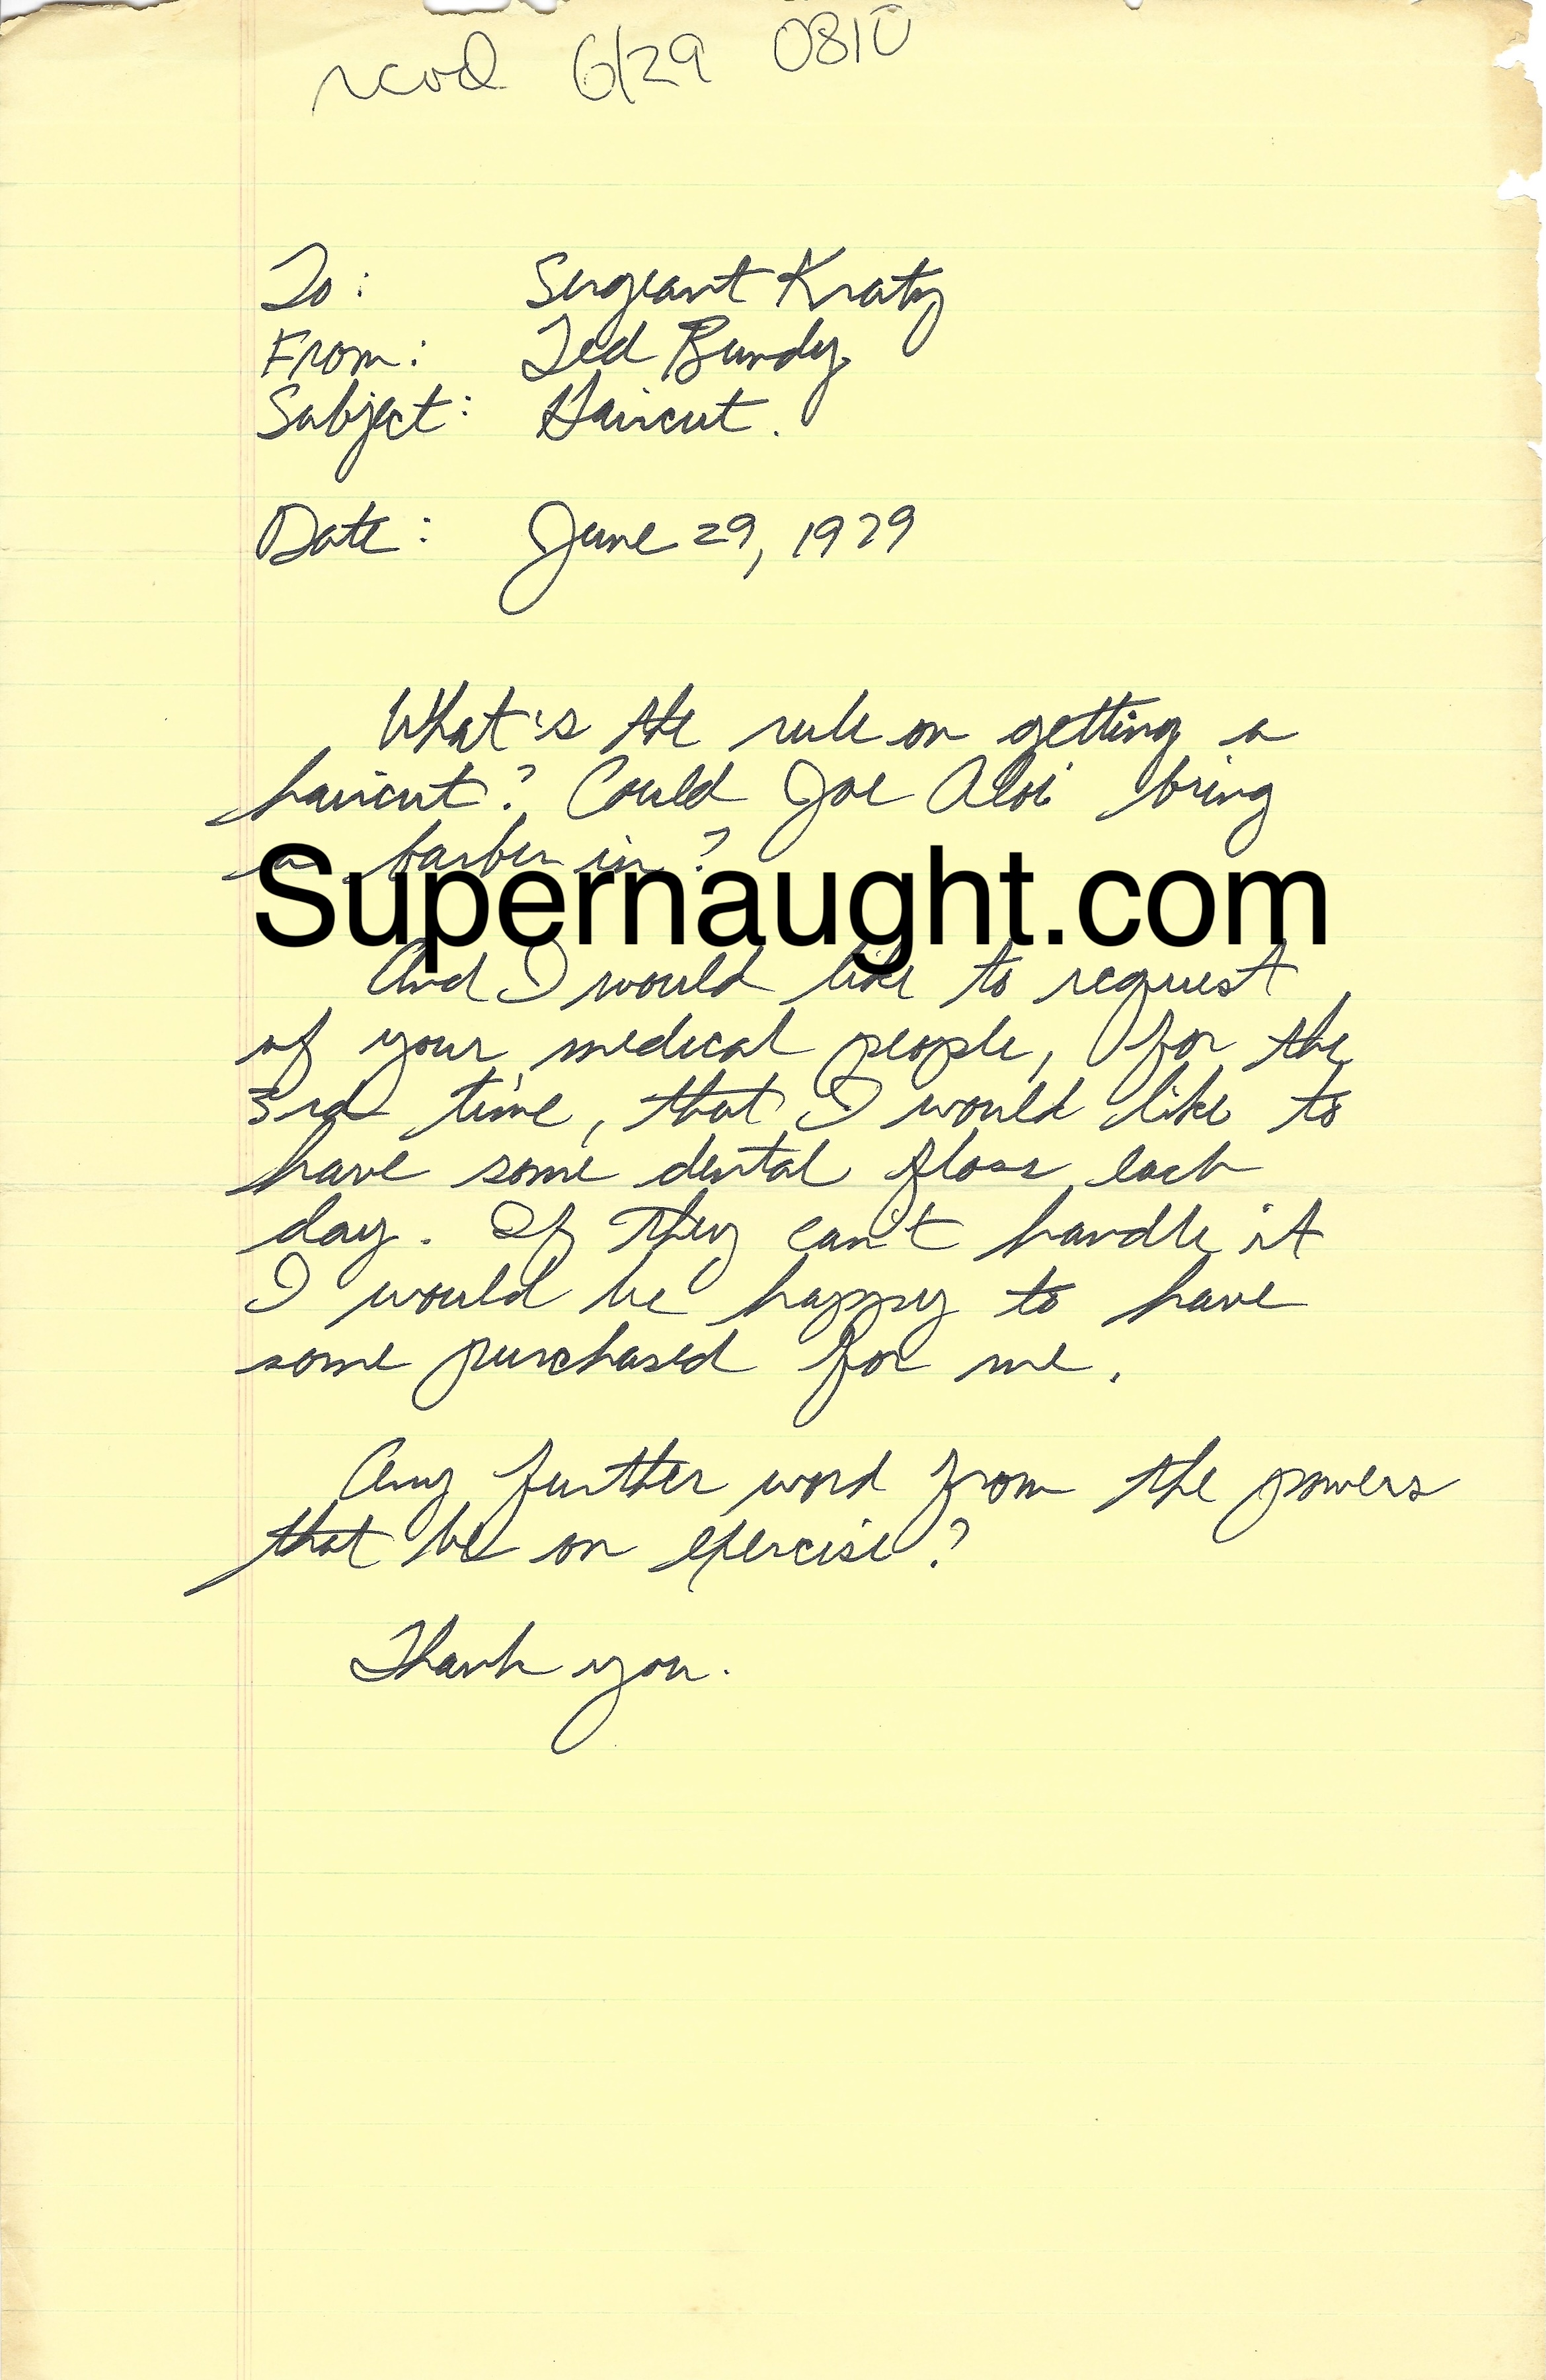 rcvd 6/29 0810
To: Sergeant Kratz
From: Ted Bundy
Subject: Haircut.
Date: June 29, 1979
What's the rule on getting a
haircut? Could Joe Aloi bring
a barber in?
Supernaught.com
And I would like to request
of your medical people, for the
3rd time, that I would like to
have some dental floss each
day. If they can't handle it
I would be happy to have
some purchased for me.
Any further word from the powers
that be on exercise?
Thank you.